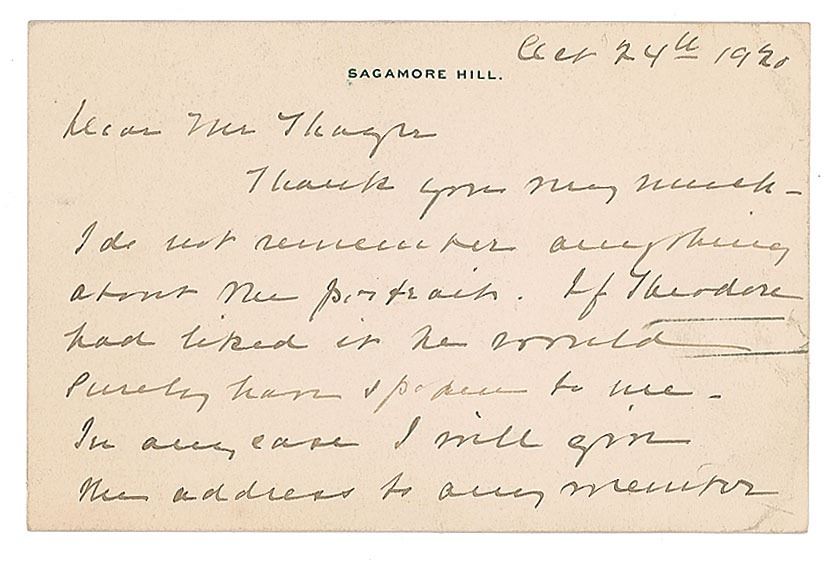 Oct 24th 1920
SAGAMORE HILL.
Dear Mr Thayer
Thank you very much -
I do not remember anything
about the portrait. If Theodore
had liked it he would
surely have spoken to me -
In any case I will give
the address to any member